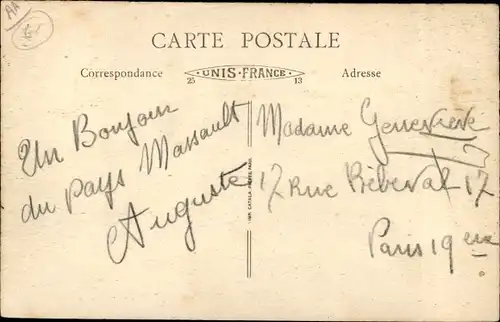 AA
CARTE POSTALE
Correspondance
UNIS-FRANCE
25 13
Adresse
Un Bonjour
du Pays Massault
Auguste
Madame Geneviève
17 Rue Rébeval 17
Paris 19 eme